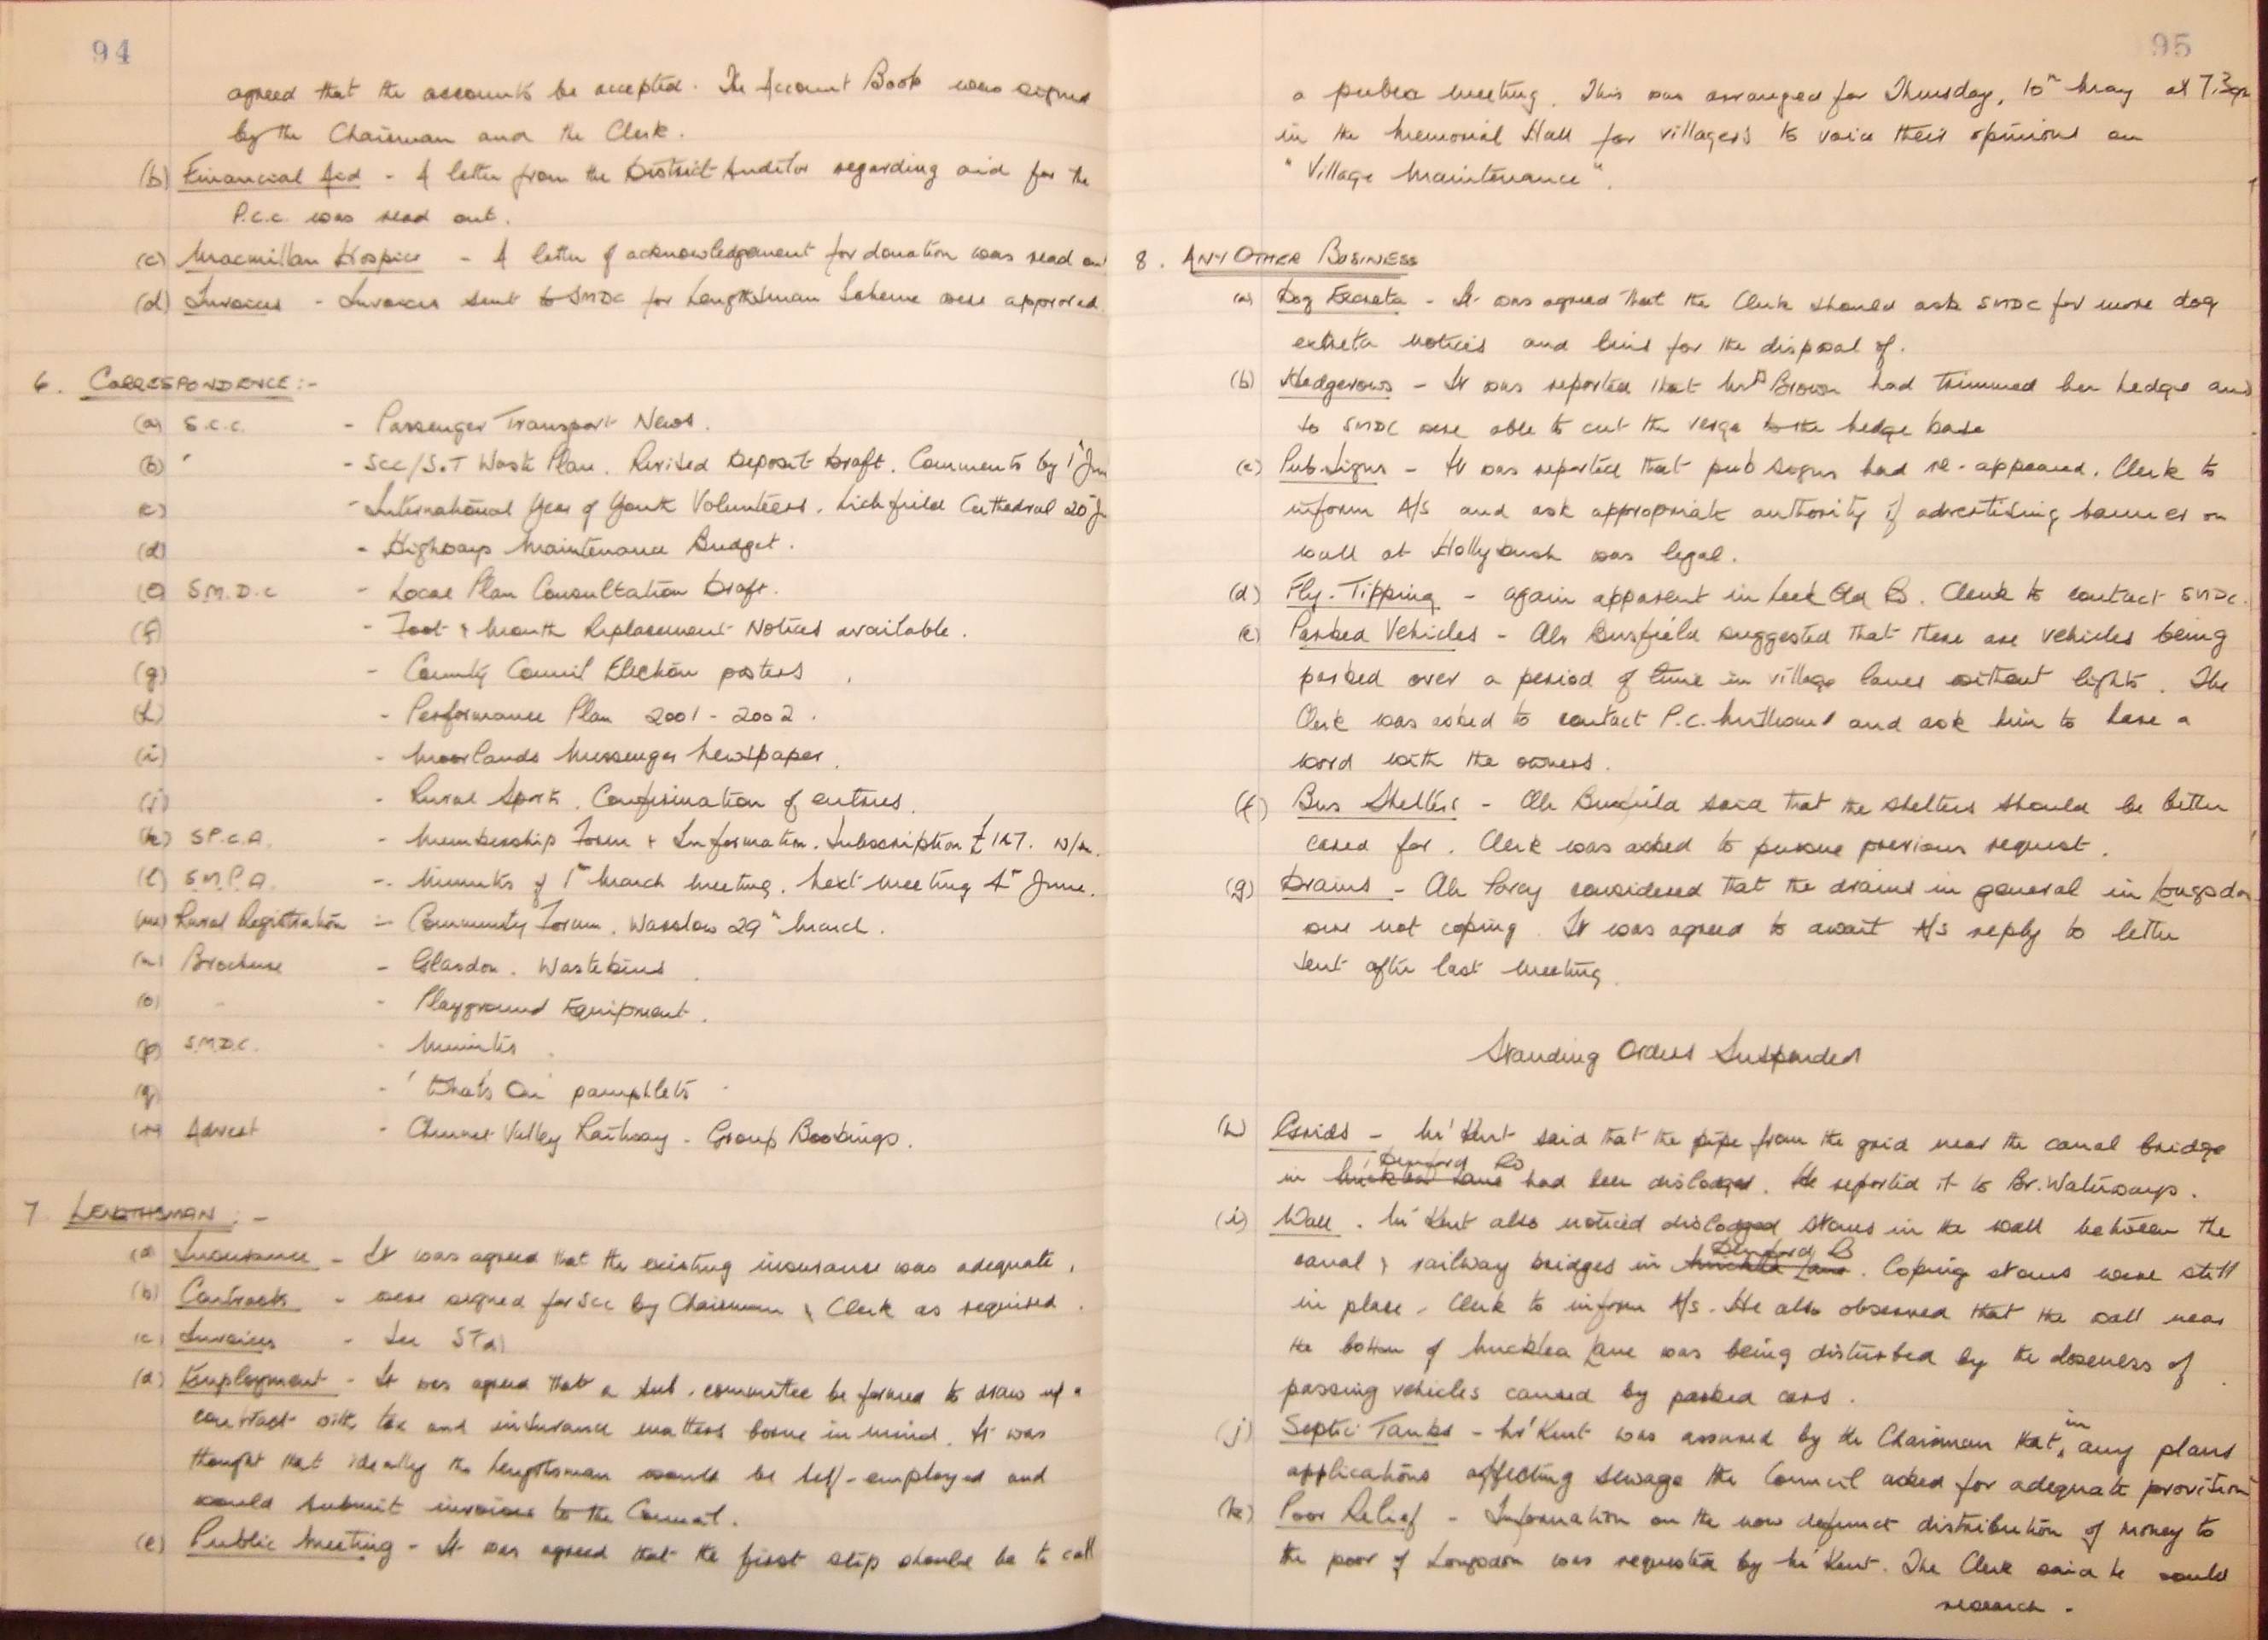 94
agreed that the accounts be accepted. The Account Book was signed
by the Chairman and the Clerk.
(b) Financial Aid - A letter from the District Auditor regarding aid for the
P.C.C. was read out.
(c) Macmillan Hospice - A letter of acknowledgement for donation was read out
(d) Invoices - Invoices sent to SMDC for Lengthsman Scheme were approved.
6. CORRESPONDENCE:-
(a) S.C.C. - Passenger Transport News.
(b) " - SCC/S.T Waste Plan. Revised Deposit Draft. Comments by 1st Jun
(c) - International Year of Youth Volunteers. Lichfield Cathedral 20th J
(d) - Highways Maintenance Budget.
(e) S.M.D.C - Local Plan Consultation Draft.
(f) - Foot & Mouth Replacement Notices available.
(g) - County Council Election posters.
(h) - Performance Plan 2001-2002.
(i) - Moorlands Messenger Newspaper.
(j) - Rural Sports. Confirmation of entries.
(k) SP.C.A. - Membership Form & Information. Subscription £127.
(l) S.M.P.A. - Minutes of 1st March meeting. Next meeting 4th June.
(m) Rural Registration - Community Forum. Warslow 29th March.
(n) Brochure - Glasdon. Wastebins.
(o) " - Playground Equipment.
(p) S.M.D.C. - Minutes.
(q) - 'What's On' pamphlets
(r) Advert - Churnet Valley Railway - Group Bookings.
7 LENGTHSMAN:-
(a) Insurance - It was agreed that the existing insurance was adequate.
(b) Contracts - were signed for SCC by Chairman & Clerk as required.
(c) Invoices - See 5(d)
(d) Employment - It was agreed that a sub-committee be formed to draw up a
contract with tax and insurance matters borne in mind. It was
thought that ideally the Lengthsman would be self-employed and
would submit invoices to the Council.
(e) Public Meeting - It was agreed that the first step should be to call
95
a public meeting. This was arranged for Thursday, 10th May at 7.30pm
in the Memorial Hall for villagers to voice their opinions on
"Village Maintenance".
8. ANY OTHER BUSINESS
(a) Dog Excreta - It was agreed that the Clerk should ask SMDC for more dog
excreta notices and bins for the disposal of.
(b) Hedgerows - It was reported that Mrs Brown had trimmed her hedge and
so SMDC were able to cut the verge to the hedge base
(c) Pub.Signs - It was reported that pub signs had re-appeared. Clerk to
inform A/S and ask appropriate authority if advertising banner on
wall at Hollybush was legal.
(d) Fly-Tipping - again apparent in Leek Old Rd. Clerk to contact SMDC.
(e) Parked Vehicles - Cllr Busfield suggested that there are vehicles being
parked over a period of time in village lanes without lights. The
Clerk was asked to contact P.C. and ask him to have a
word with the owners.
(f) Bus Shelters - Cllr Busfield said that the shelters should be better
cared for. Clerk was asked to pursue previous request.
(g) Drains - Cllr considered that the drains in general in Longsdon
were not coping. It was agreed to await A/S reply to letter
sent after last meeting.
Standing Orders Suspended
(h) Grids - Mr Kent said that the pipe from the grid near the canal bridge
Denford Rd
in Micklea Lane had been dislodged. He reported it to Br. Waterways.
(i) Wall. Mr Kent also noticed dislodged stones in the wall between the
Denford Rd
canal & railway bridges in Micklea Lane. Coping stones were still
in place. Clerk to inform A/S. He also observed that the wall near
the bottom of Micklea Lane was being disturbed by the closeness of
passing vehicles caused by parked cars.
(j) Septic Tanks - Mr Kent was assured by the Chairman that in any plans
applications affecting sewage the Council asked for adequate provision
(k) Poor Relief - Information on the now defunct distribution of money to
the poor of Longsdon was requested by Mr Kent. The Clerk said he would
research.